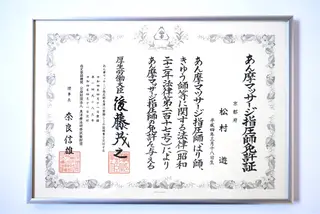 あん摩マッサージ指圧師免許証
京都府
松村 遊
あん摩マッサージ指圧師、はり師、
きゅう師等に関する法律(昭和
二十二年法律第二百十七号)により
あん摩マッサージ指圧師の免許を与える
厚生労働大臣 後藤茂之
理事長 奈良信雄